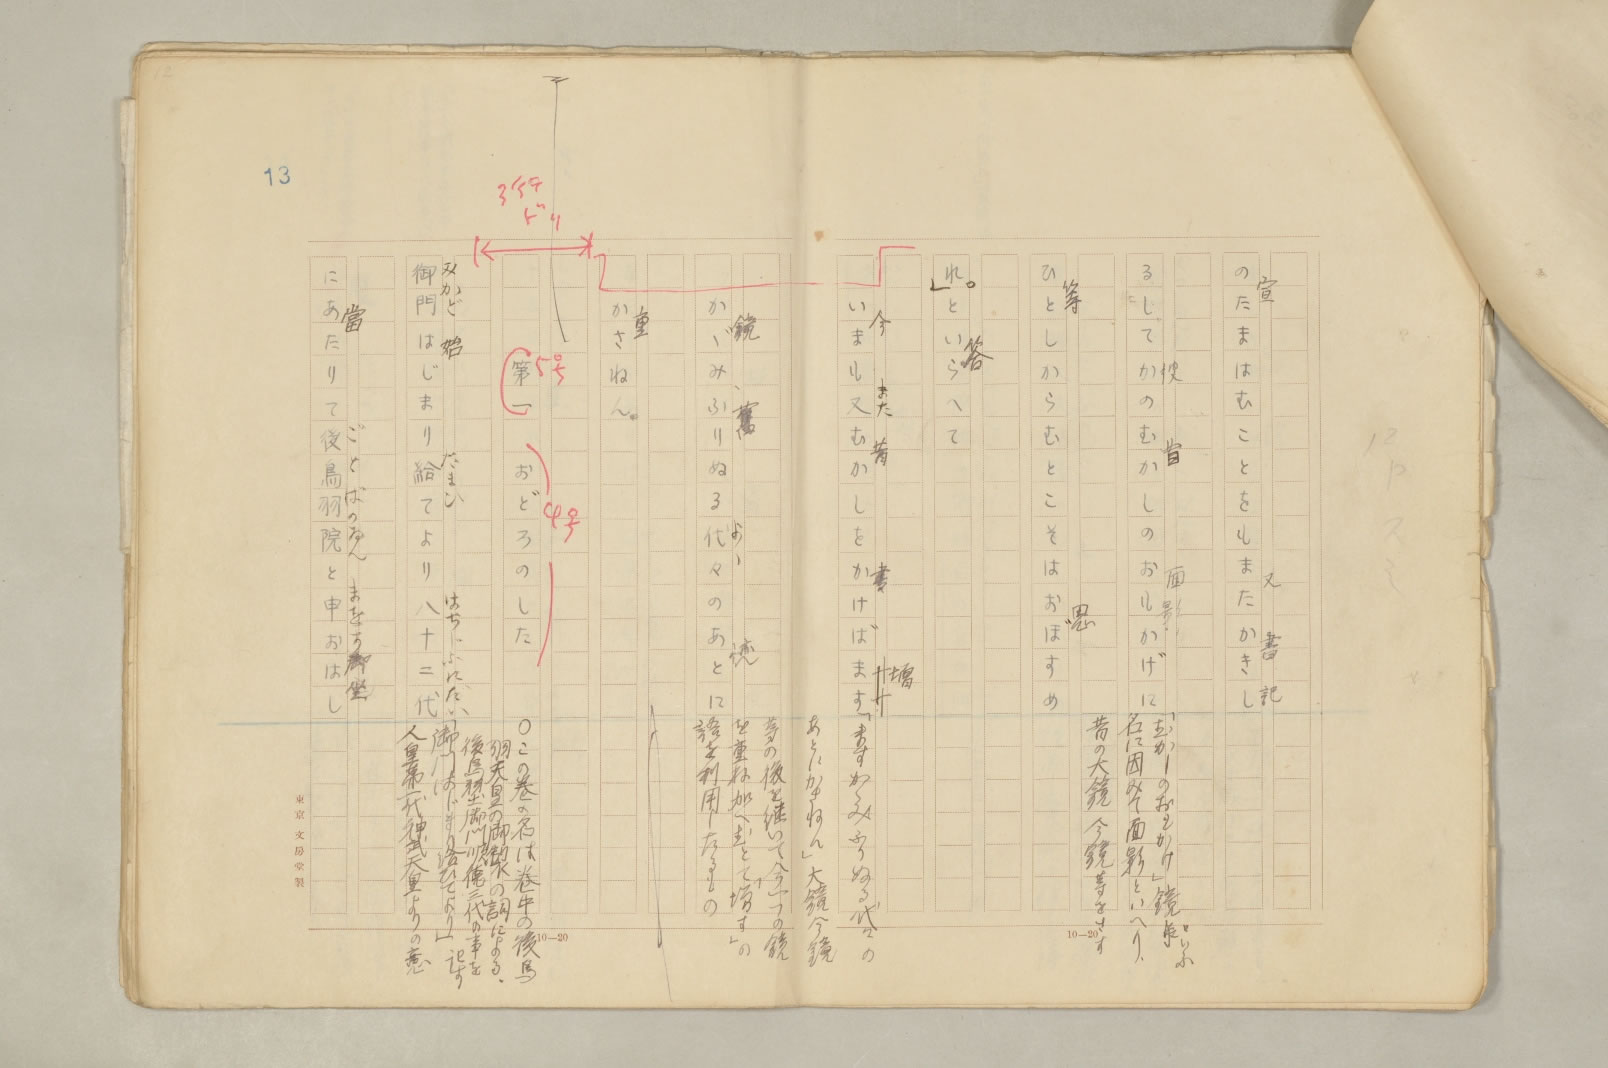 のたまはむことをもまたかきし
宣 又 書記
るしてかのむかしのおもかげに
彼 昔 面影
ひとしからむとこそはおぼすめ
等 思
れ。」といらへて
答
いまも又むかしをかけばます
今 また 昔 書 増
かゞみふりぬる代々のあとに
鏡 舊 よゝ 迹
かさねん。
重
第一 おどろのした
5号 4号
3行
ドリ
御門はじまり給てより八十二代
みかど 始 たまひ はちじふにだい
にあたりて後鳥羽院と申おはし
當 ごとばのゐん まをす 御坐
「むかしのおもかげ」鏡といふ
名に因みて面影といへり、
昔の大鏡今鏡等をさす
「ますかゞみふりぬる代々の
あとにかさねん」大鏡今鏡
等の後を継いで今一つの鏡
を重ね加へむとて「増す」の
語を利用したるもの
○この巻の名は巻中の後鳥
羽天皇の御製の詞による、
後鳥羽土御門順徳三代の事を
記す
「御門はじまり給ひてより」
人皇第一代神武天皇よりの意
13
12
10—20
10—20
東京 文房堂製